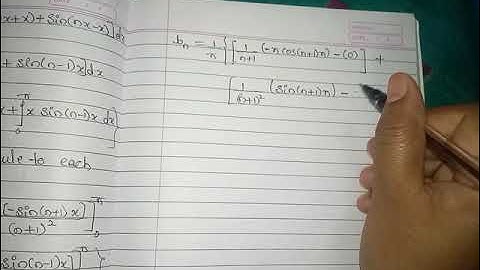 x+x)+sin(nx-x)]dx
+ sin(n-1)x]dx
x + ∫ x sin(n-1)x dx]
rule to each
[-sin(n+1)x]
(n+1)²
-sin(n-1)x]
bn = 1/π {[1/(n+1) (-π cos(n+1)π) - (0)] +
[1/(n+1)² (sin(n+1)π) -